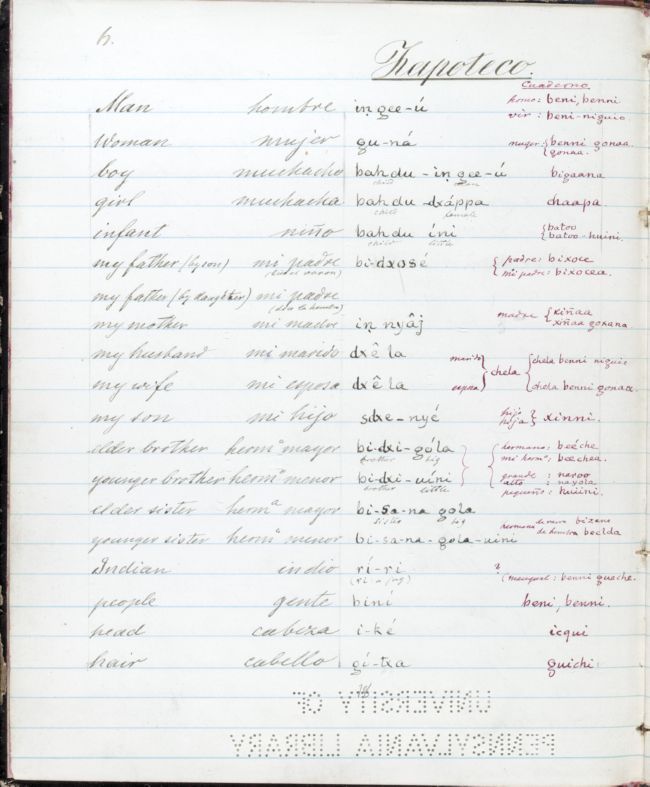 6.
Zapoteco.
Cuaderno
Man hombre iṇ gee-ú homo: beni, benni
vir: beni-niguio
Woman mujer gu-ná muger: { benni gonaa
{ gonaa.
boy muchacho bah du - iṇ gee-ú bigaana
child man
girl muchacha bah du - dxáppa chaapa.
child female
infant niño bah du íni { batoo
child little { batoo-huini.
my father (by son) mi padre bi-dxosé { padre: bixoce
{ mi padre: bixocea.
my father (by daughter) mi padre
my mother mi madre iṇ nyâj madre { xiñaa
{ xiñaa goxana.
my husband mi marido dxê la marido } chela { chela benni niguio
my wife mi esposa dxê la esposa } { chela benni gonaa.
my son mi hijo sdxe-nyé hijo
hija } xinni.
elder brother hermº mayor bi-dxi-góla } { hermano: beéche
brother big mi hermº: beechea.
younger brother hermº menor bi-dxi-uini grande : naroo
brother little alto : nayola
pequeño: huiini.
elder sister hermª mayor bi-sa-na gola
sister big hermana de varon bizana
younger sister hermª menor bi-sa-na-gola-uini de hembra beelda
Indian indio rí-ri ?
(mexequal: benni gueche.
people gente biní beni, benni.
head cabeza i-ké icqui
hair cabello gí-txa guichi
UNIVERSITY OF
PENNSYLVANIA LIBRARY